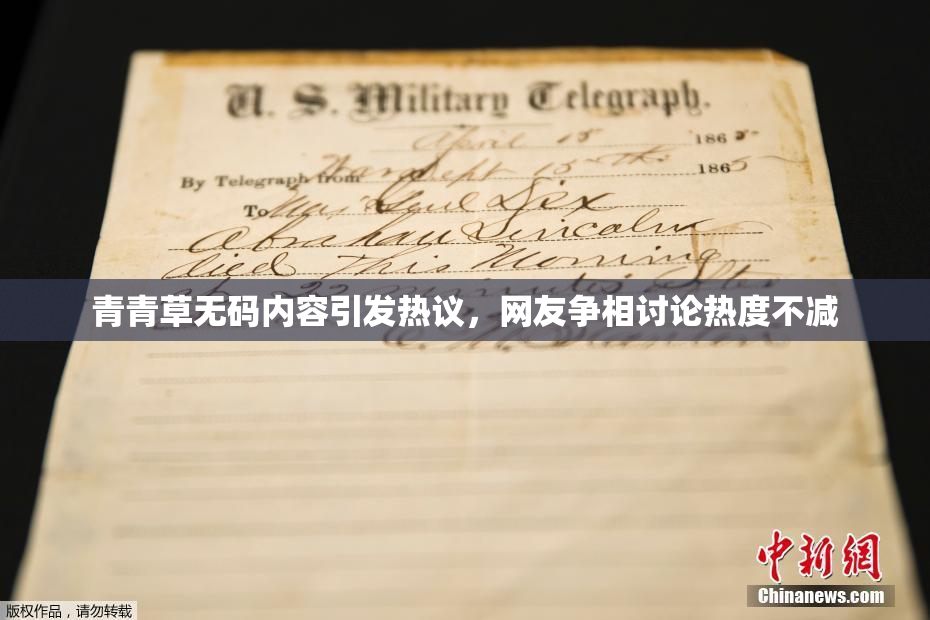 U. S. Military Telegraph.
April 15 1865
By Telegraph from War Dept 15th 1865
To Maj Genl Dix
Abraham Lincoln
died This Morning
at 22 minutes after
青青草无码内容引发热议，网友争相讨论热度不减
E. M. Stanton
中新網
Chinanews.com
版权作品，请勿转载